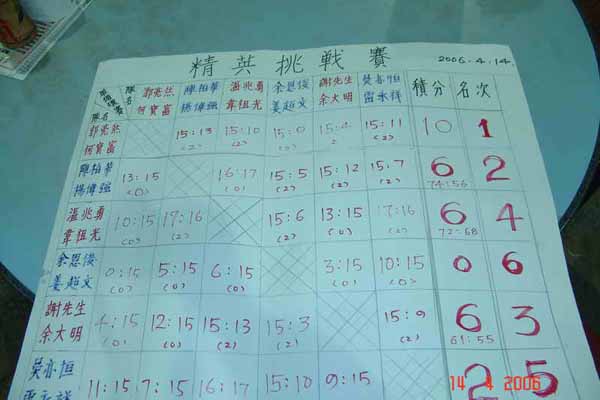 精英挑戰賽 2006.4.14
隊名 隊名 郭亮然 何寶富 陳柏華 楊偉強 溫兆勇 韋祖光 余恩俊 姜超文 謝先生 余大明 莫亦恒 雷永祥 積分 名次
郭亮然 何寶富 15:13 (2) 15:10 (2) 15:0 (2) 15:4 (2) 15:11 (2) 10 1
陳柏華 楊偉強 13:15 (0) 16:17 (0) 15:5 (2) 15:12 (2) 15:7 (2) 6 74:56 2
溫兆勇 韋祖光 10:15 (0) 17:16 (2) 15:6 (2) 13:15 (0) 17:16 (2) 6 72:68 4
余恩俊 姜超文 0:15 (0) 5:15 (0) 6:15 (0) 3:15 (0) 10:15 (0) 0 6
謝先生 余大明 4:15 (0) 12:15 (0) 15:13 (2) 15:3 (2) 15:9 (2) 6 61:55 3
莫亦恒 11:15 7:15 16:17 15:10 9:15 2 5
14 4 2006